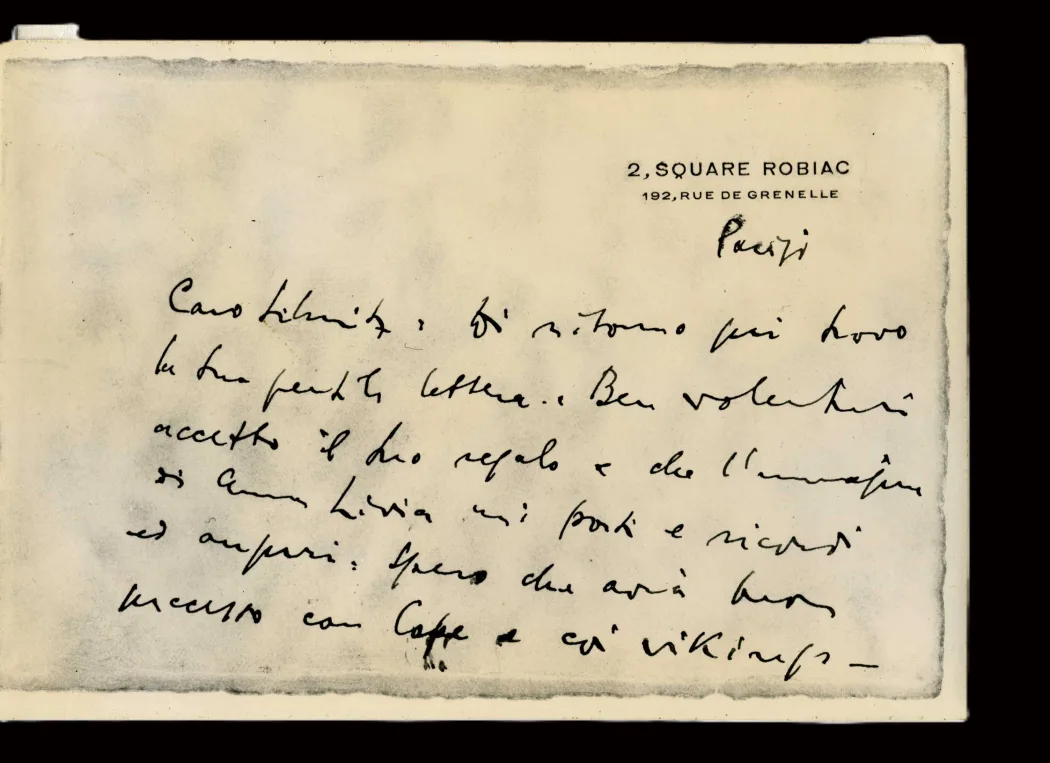 2, SQUARE ROBIAC
192, RUE DE GRENELLE
Parigi
Caro Schmitz: Di ritorno qui trovo
la tua gentile lettera. Ben volentieri
accetto il tuo regalo e che l'immagine
di Anna Livia mi porti e ricordi
ed auguri. Spero che avrà buon
successo con e coi vikings –